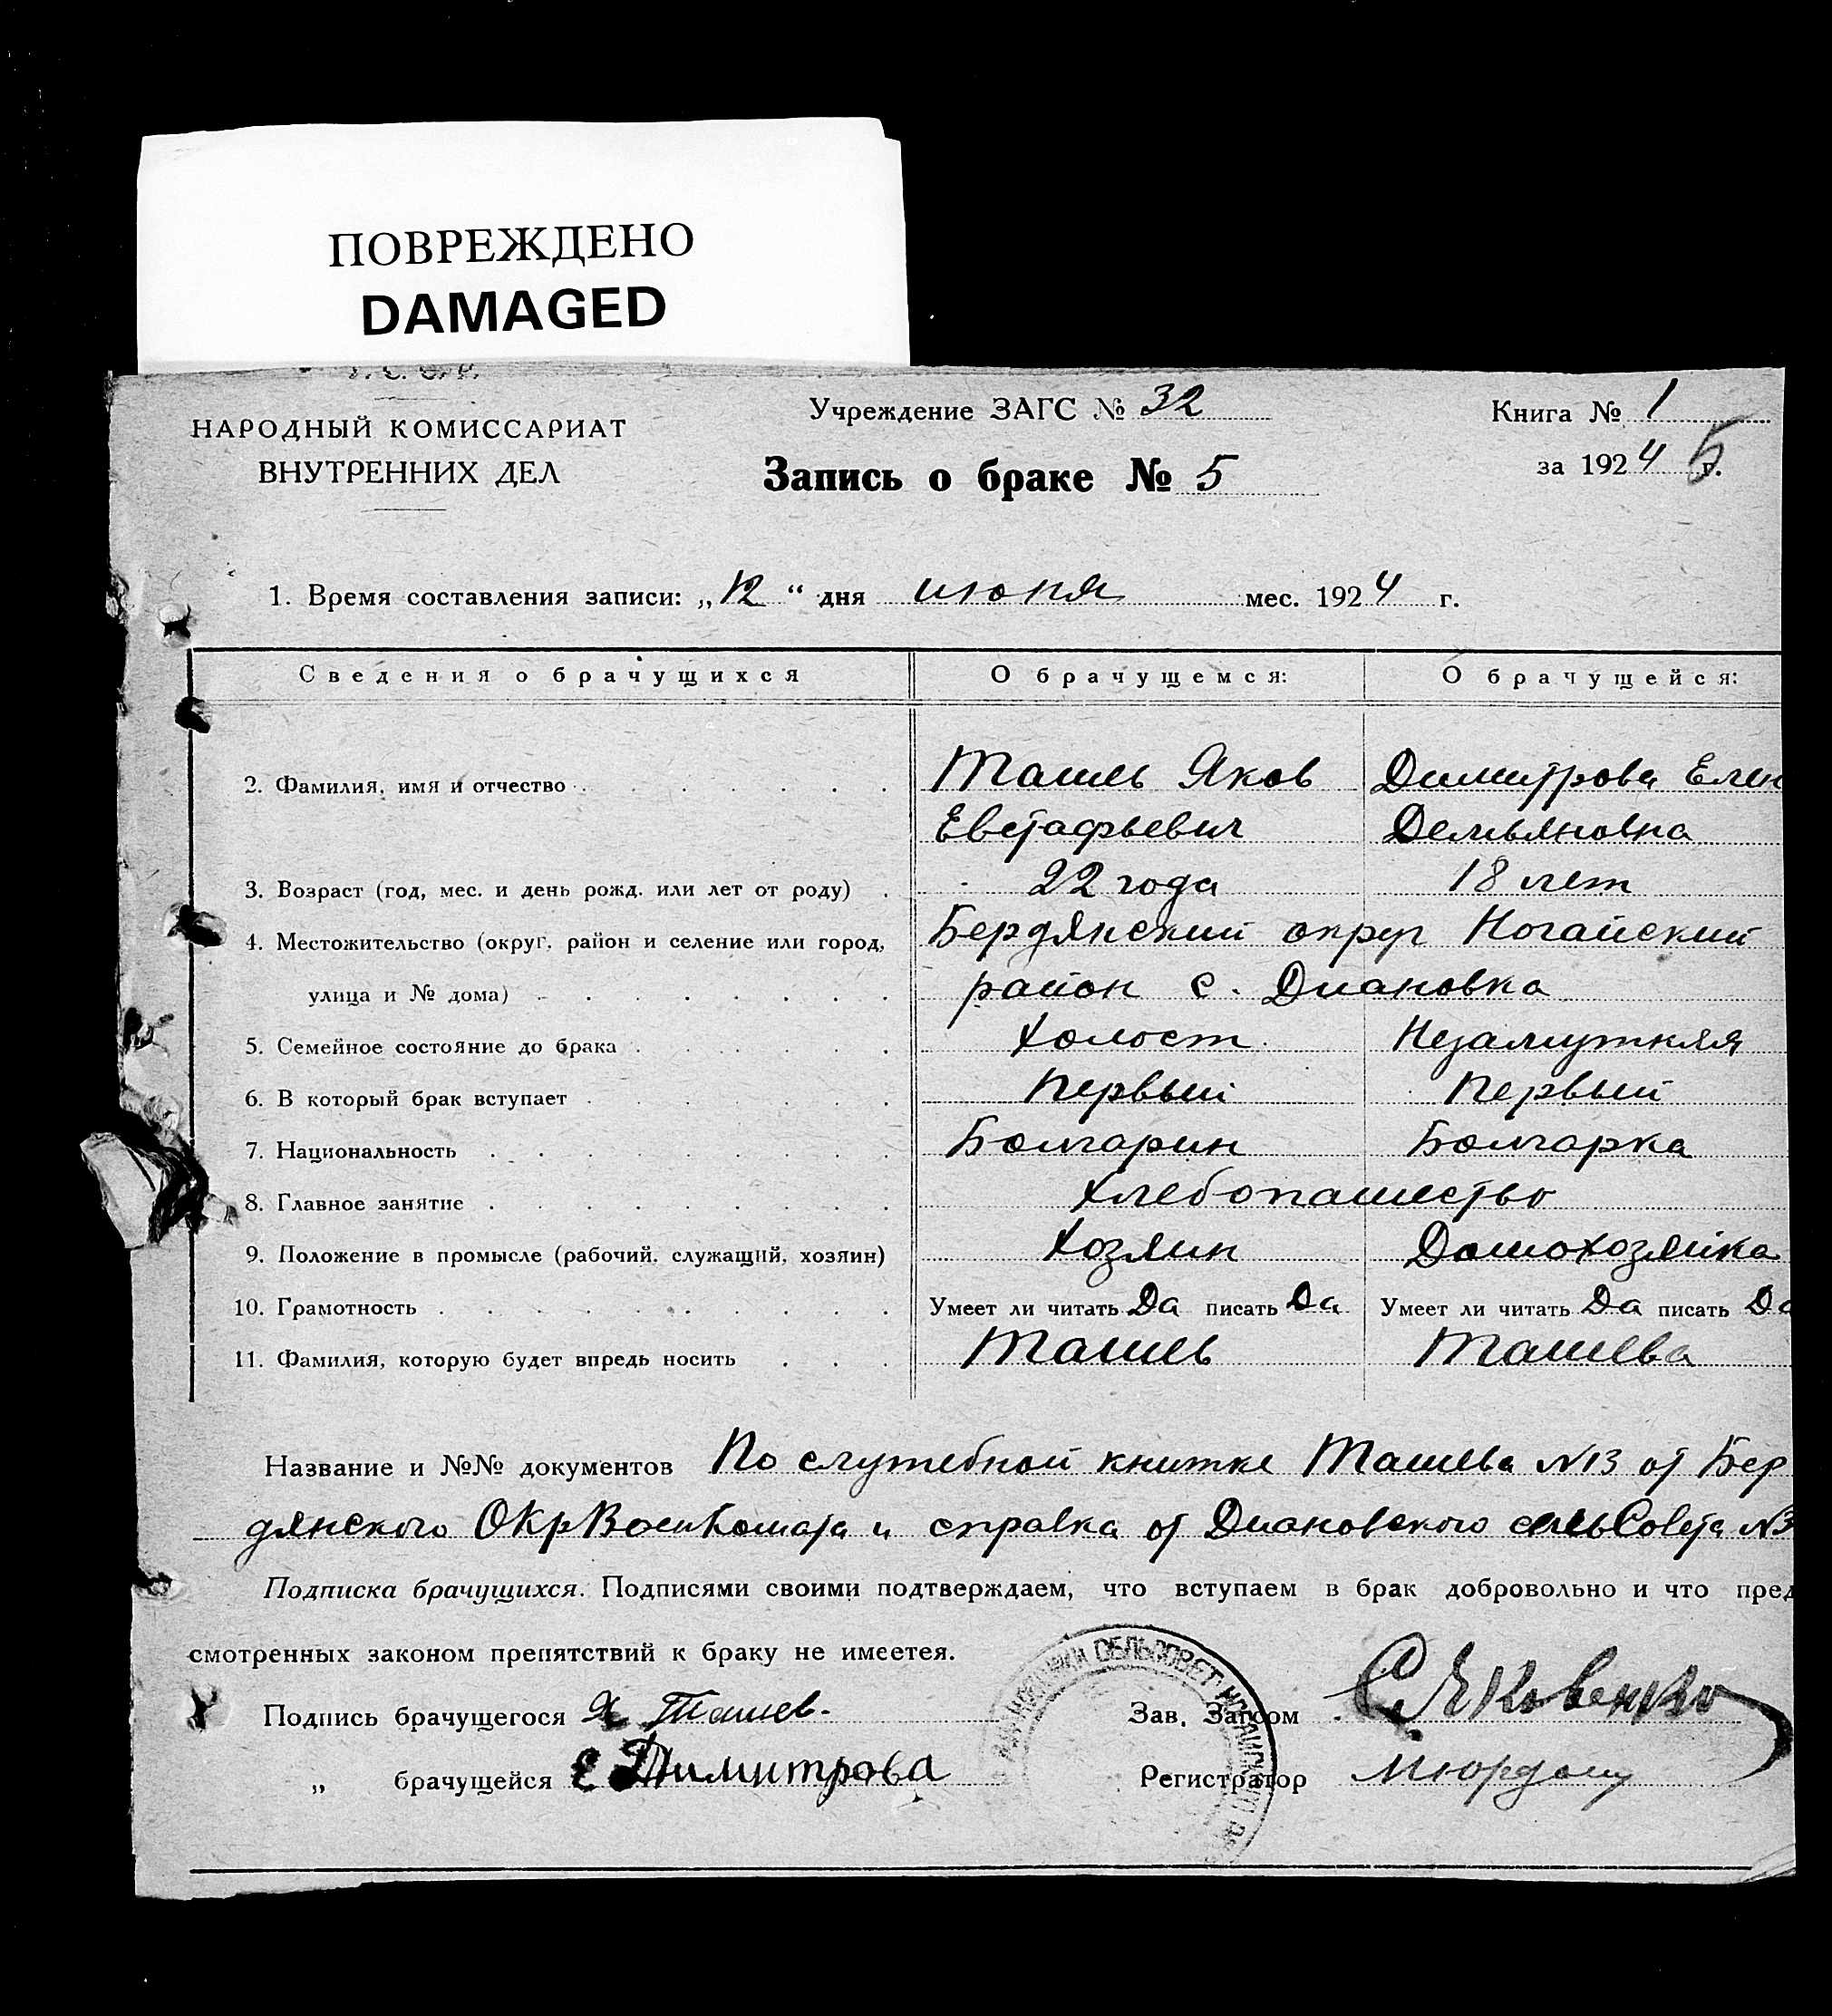 ПОВРЕЖДЕНО
DAMAGED
НАРОДНЫЙ КОМИССАРИАТ
ВНУТРЕННИХ ДЕЛ
Учреждение ЗАГС № 32
Запись о браке № 5
Книга № 1
за 1924 г. 5
1. Время составления записи: „12“ дня июня мес. 1924 г.
Сведения о брачущихся О брачущемся: О брачущейся:
2. Фамилия, имя и отчество Ташев Яков Димитрова Елен
Евстафьевич Демьяновна
3. Возраст (год, мес. и день рожд. или лет от роду) 22 года 18 лет
4. Местожительство (округ, район и селение или город, Бердянский округ Ногайский
улица и № дома) район с. Диановка
5. Семейное состояние до брака Холост Незамужняя
6. В который брак вступает Первый Первый
7. Национальность Болгарин Болгарка
8. Главное занятие Хлебопашество
9. Положение в промысле (рабочий, служащий, хозяин) Хозяин Домохозяйка
10. Грамотность Умеет ли читать Да писать Да Умеет ли читать Да писать Да
11. Фамилия, которую будет впредь носить Ташев Ташева
Название и №№ документов По служебной книжке Ташева №13 от Бер
дянского ОкрВоенкомата и справка от Диановского сельСовета №3
Подписка брачущихся. Подписями своими подтверждаем, что вступаем в брак добровольно и что пред
смотренных законом препятствий к браку не имеетея.
Подпись брачущегося Я Ташев.
Зав. Загсом С Яковенко
„ брачущейся Е Димитрова
Регистратор
СЕЛЬСОВЕТ